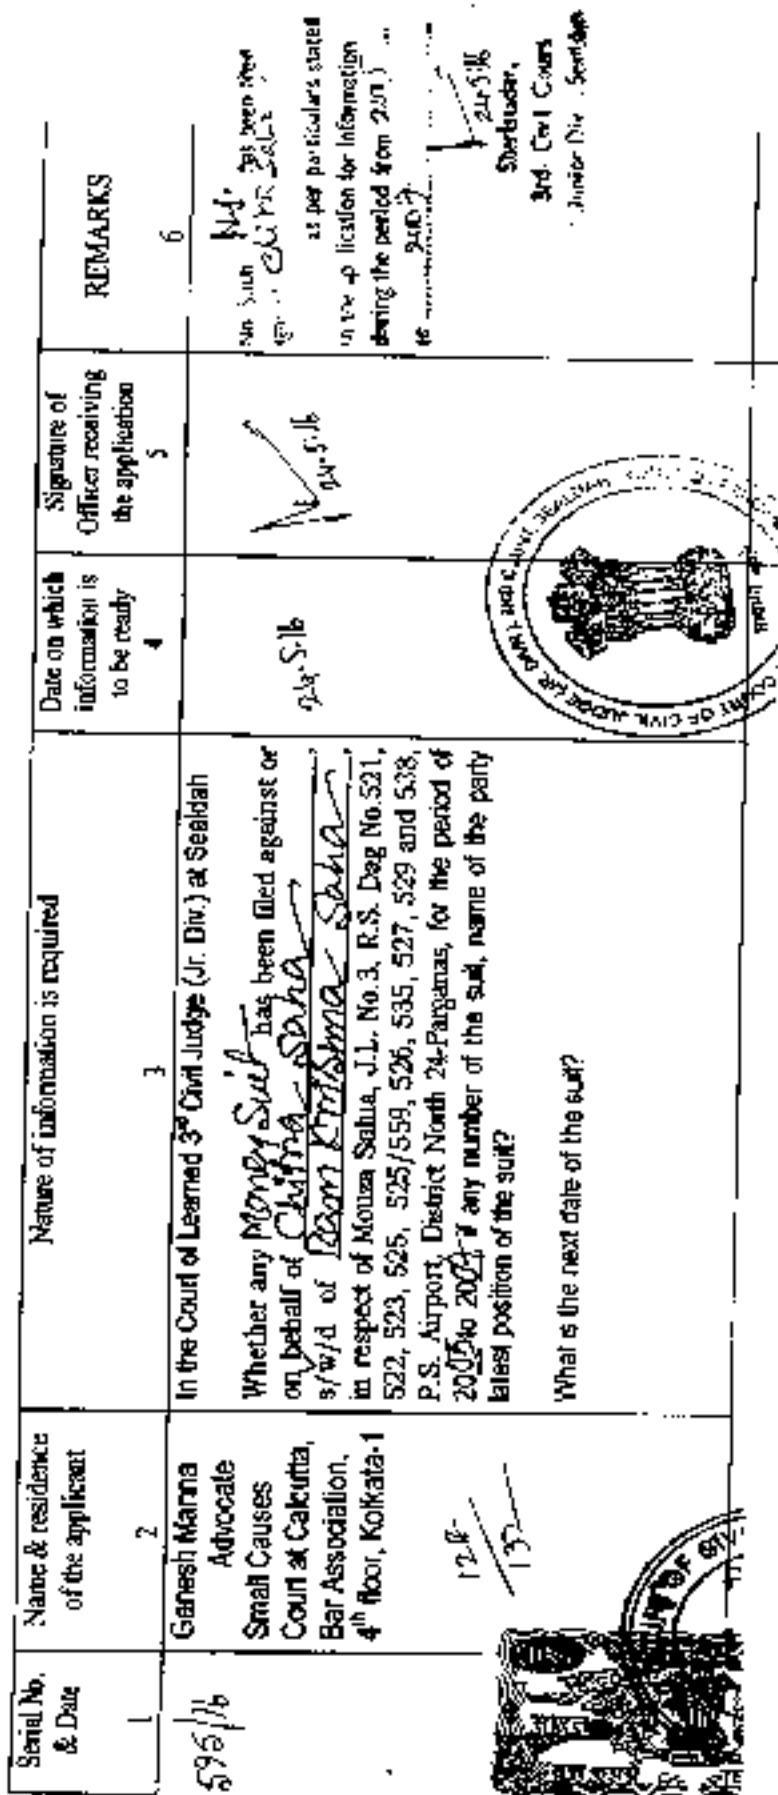 Serial No. & Date
1
Name & residence of the applicant
2
Nature of information is required
3
Date on which information is to be ready
4
Signature of Officer receiving the application
5
REMARKS
6
595/16
Ganesh Manna
Advocate
Small Causes
Court at Calcutta,
Bar Association,
4th floor, Kolkata-1
In the Court of Learned 3rd Civil Judge (Jr. Div.) at Sealdah
Whether any Money Suit has been filed against or
on behalf of Saha
s/w/d of Ram Krishna Saha
in respect of Mouza Salua, J.L. No.3, R.S. Dag No.521,
522, 523, 525, 525/559, 526, 535, 527, 529 and 538,
P.S. Airport, District North 24-Parganas, for the period of
to if any number of the suit, name of the party
latest position of the suit?
What is the next date of the suit?
24.5.16
24.5.16
No Such has been filed
as per particulars stated
in the application for Information
during the period from
to
24.5.16
Sheristadar,
3rd Civil Court
Junior Div.
COURT OF CIVIL JUDGE (JR. DIVN.)